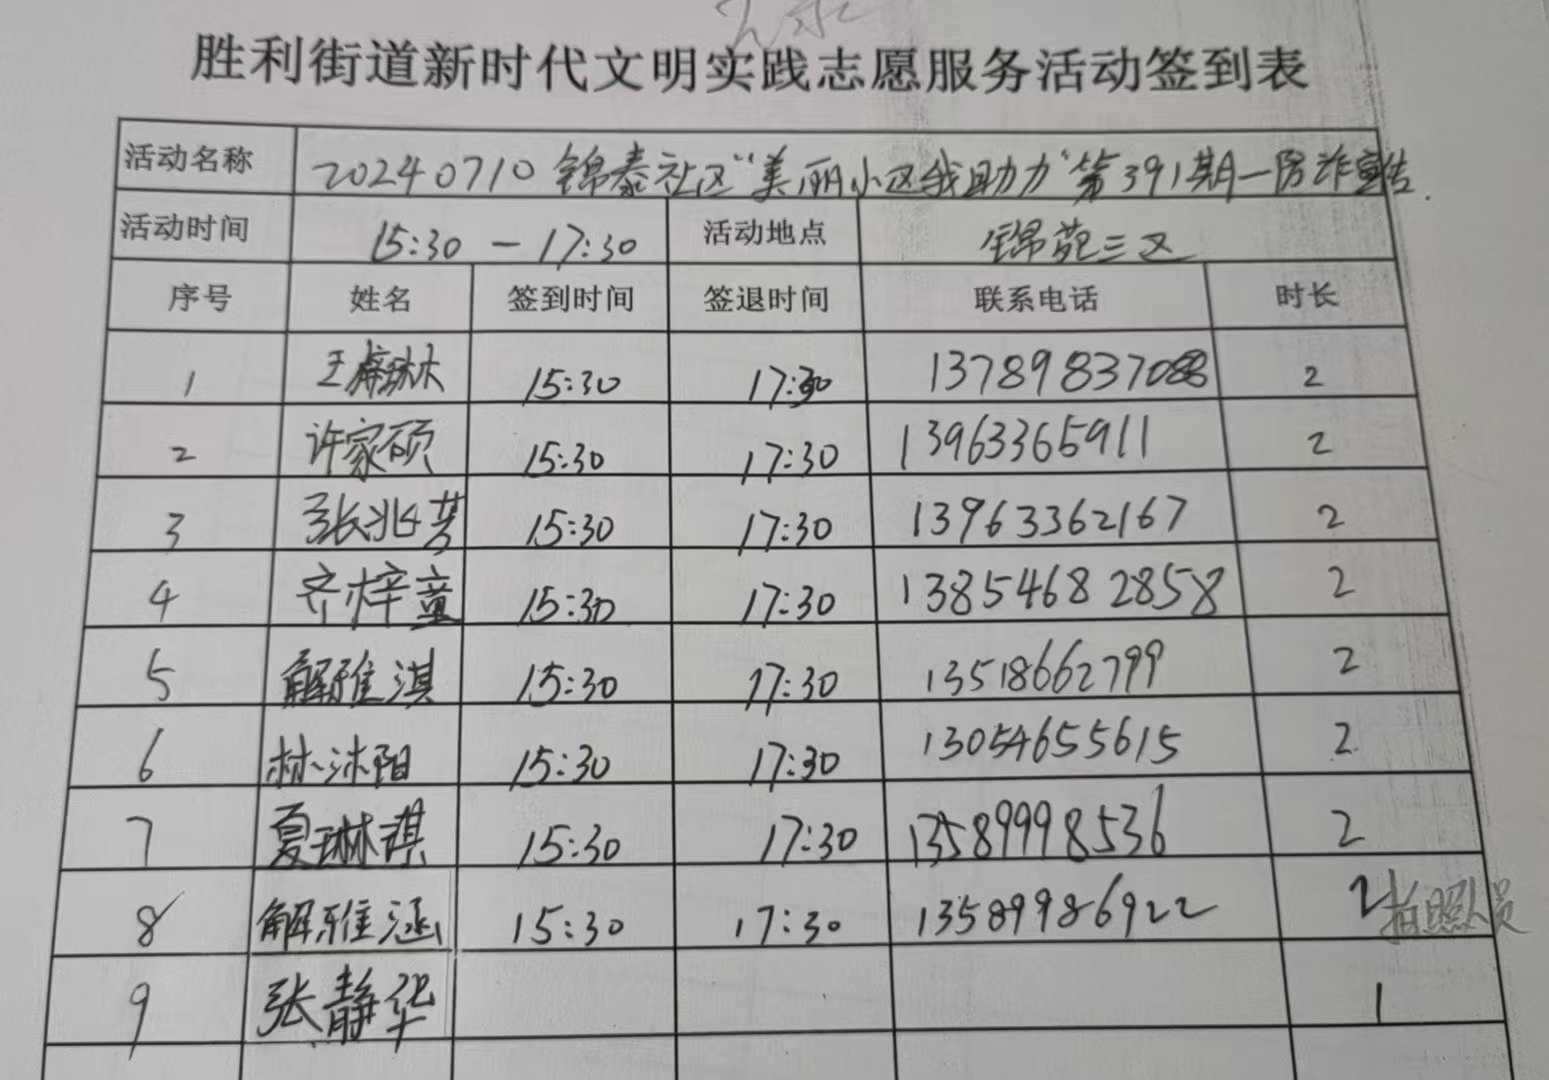 胜利街道新时代文明实践志愿服务活动签到表
活动名称 20240710 锦泰社区“美丽小区我助力”第391期—防诈宣传
活动时间 15:30 — 17:30 活动地点 锦苑三区
序号 姓名 签到时间 签退时间 联系电话 时长
1 王梓琳 15:30 17:30 13789837088 2
2 许家硕 15:30 17:30 13963365911 2
3 张兆芸 15:30 17:30 13963362167 2
4 齐梓童 15:30 17:30 13854682858 2
5 解雅淇 15:30 17:30 13518662799 2
6 林沐阳 15:30 17:30 13054655615 2
7 夏琳祺 15:30 17:30 13589998536 2
8 解雅涵 15:30 17:30 13589986922 2 拍照人员
9 张静华 1